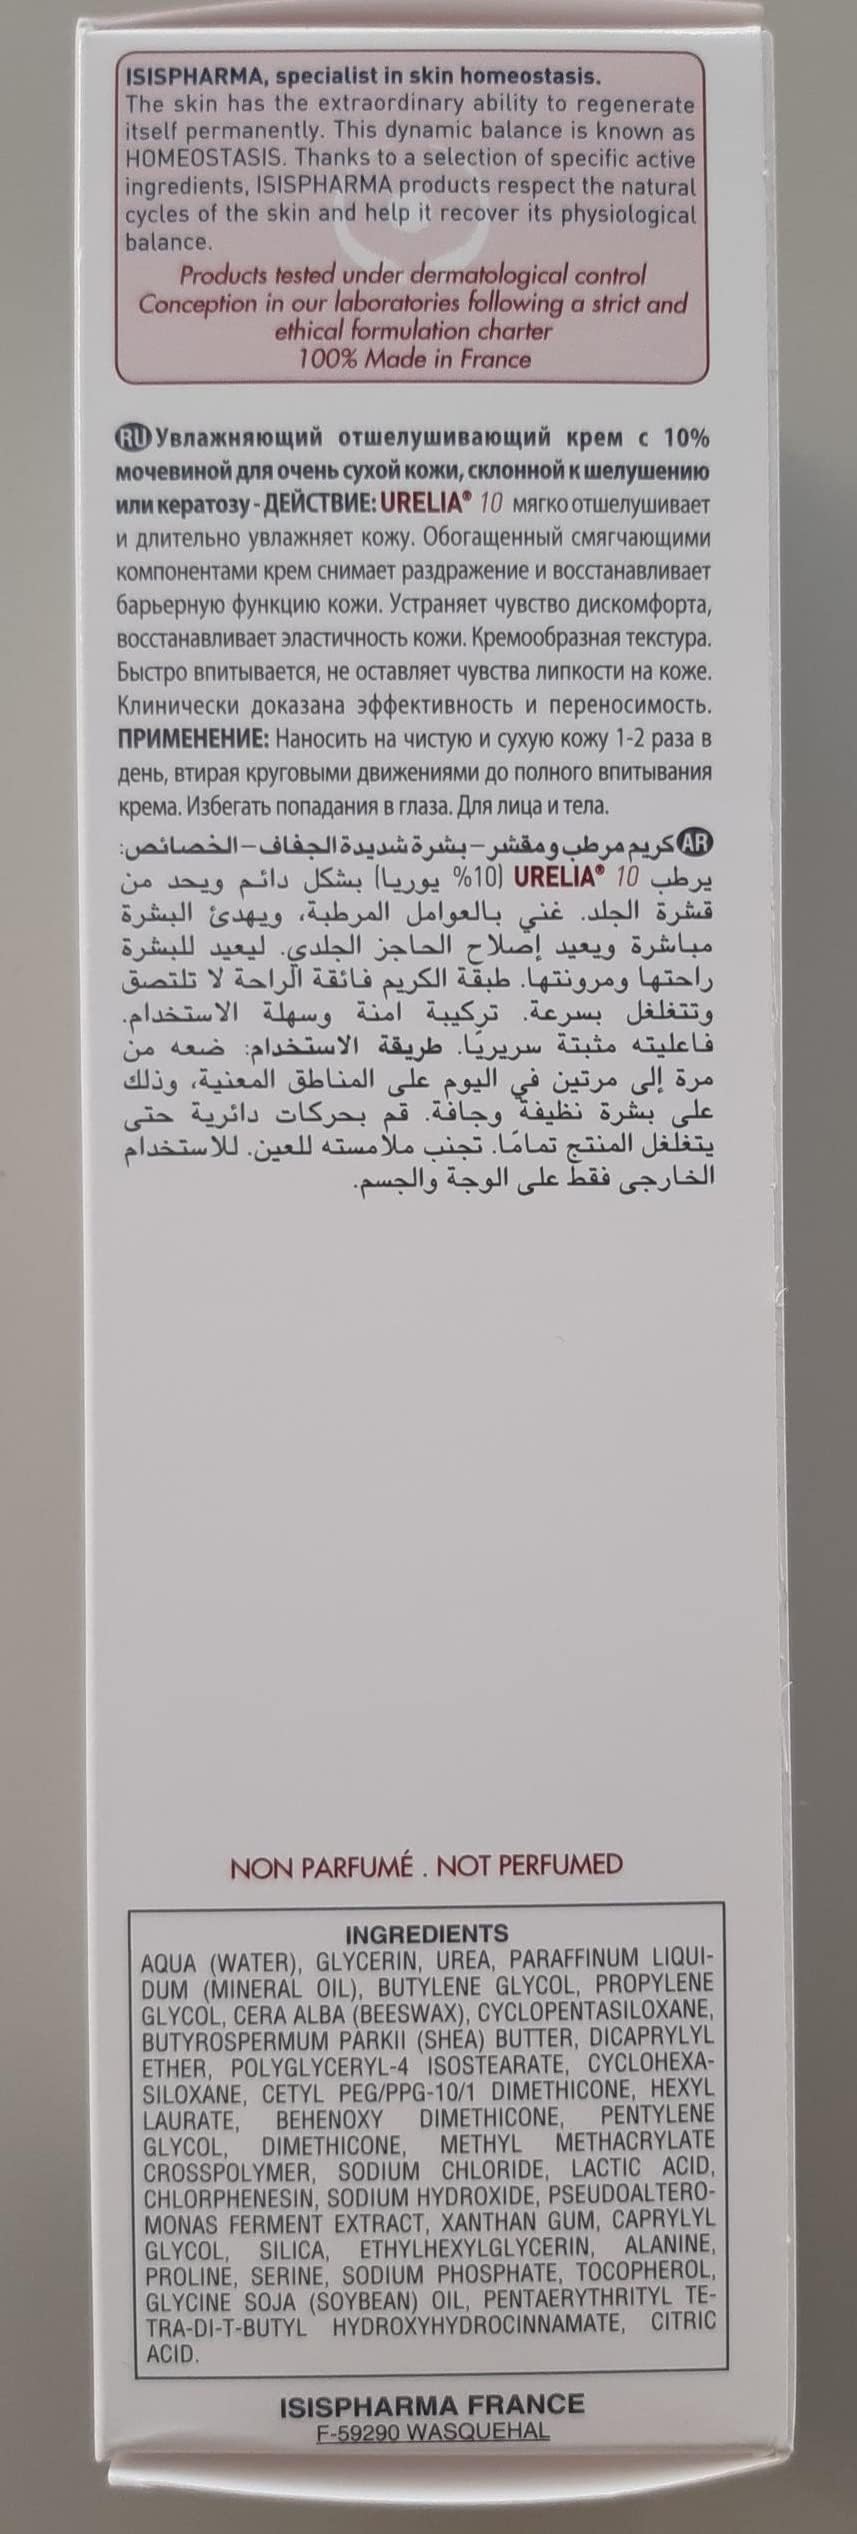 ISISPHARMA, specialist in skin homeostasis.
The skin has the extraordinary ability to regenerate
itself permanently. This dynamic balance is known as
HOMEOSTASIS. Thanks to a selection of specific active
ingredients, ISISPHARMA products respect the natural
cycles of the skin and help it recover its physiological
balance.
Products tested under dermatological control
Conception in our laboratories following a strict and
ethical formulation charter
100% Made in France
RU Увлажняющий отшелушивающий крем с 10%
мочевиной для очень сухой кожи, склонной к шелушению
или кератозу - ДЕЙСТВИЕ: URELIA® 10 мягко отшелушивает
и длительно увлажняет кожу. Обогащенный смягчающими
компонентами крем снимает раздражение и восстанавливает
барьерную функцию кожи. Устраняет чувство дискомфорта,
восстанавливает эластичность кожи. Кремообразная текстура.
Быстро впитывается, не оставляет чувства липкости на коже.
Клинически доказана эффективность и переносимость.
ПРИМЕНЕНИЕ: Наносить на чистую и сухую кожу 1-2 раза в
день, втирая круговыми движениями до полного впитывания
крема. Избегать попадания в глаза. Для лица и тела.
AR كريم مرطب ومقشر-بشرة شديدة الجفاف-الخصائص:
يرطب URELIA® 10 (10% يوريا) بشكل دائم ويحد من
قشرة الجلد. غني بالعوامل المرطبة، ويهدئ البشرة
مباشرة ويعيد إصلاح الحاجز الجلدي. ليعيد للبشرة
راحتها ومرونتها. طبقة الكريم فائقة الراحة لا تلتصق
وتتغلغل بسرعة. تركيبة آمنة وسهلة الاستخدام.
فاعليته مثبتة سريريًا. طريقة الاستخدام: ضعه من
مرة إلى مرتين في اليوم على المناطق المعنية، وذلك
على بشرة نظيفة وجافة. قم بحركات دائرية حتى
يتغلغل المنتج تمامًا. تجنب ملامسته للعين. للاستخدام
الخارجى فقط على الوجة والجسم.
NON PARFUMÉ . NOT PERFUMED
INGREDIENTS
AQUA (WATER), GLYCERIN, UREA, PARAFFINUM LIQUI-
DUM (MINERAL OIL), BUTYLENE GLYCOL, PROPYLENE
GLYCOL, CERA ALBA (BEESWAX), CYCLOPENTASILOXANE,
BUTYROSPERMUM PARKII (SHEA) BUTTER, DICAPRYLYL
ETHER, POLYGLYCERYL-4 ISOSTEARATE, CYCLOHEXA-
SILOXANE, CETYL PEG/PPG-10/1 DIMETHICONE, HEXYL
LAURATE, BEHENOXY DIMETHICONE, PENTYLENE
GLYCOL, DIMETHICONE, METHYL METHACRYLATE
CROSSPOLYMER, SODIUM CHLORIDE, LACTIC ACID,
CHLORPHENESIN, SODIUM HYDROXIDE, PSEUDOALTERO-
MONAS FERMENT EXTRACT, XANTHAN GUM, CAPRYLYL
GLYCOL, SILICA, ETHYLHEXYLGLYCERIN, ALANINE,
PROLINE, SERINE, SODIUM PHOSPHATE, TOCOPHEROL,
GLYCINE SOJA (SOYBEAN) OIL, PENTAERYTHRITYL TE-
TRA-DI-T-BUTYL HYDROXYHYDROCINNAMATE, CITRIC
ACID.
ISISPHARMA FRANCE
F-59290 WASQUEHAL